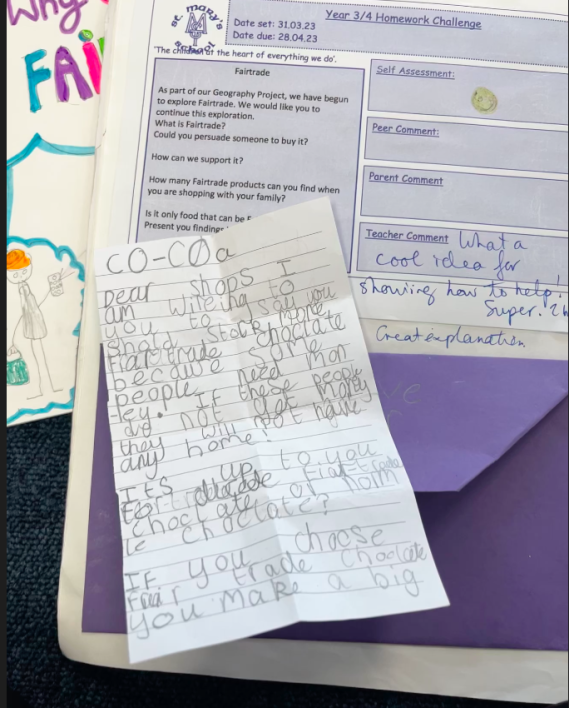 Why
FAI
st. mary's
school
'The children at the heart of everything we do'.
Year 3/4 Homework Challenge
Date set: 31.03.23
Date due: 28.04.23
Fairtrade
As part of our Geography Project, we have begun
to explore Fairtrade. We would like you to
continue this exploration.
What is Fairtrade?
Could you persuade someone to buy it?
How can we support it?
How many Fairtrade products can you find when
you are shopping with your family?
Is it only food that can be F
Present you findings
Self Assessment:
Peer Comment:
Parent Comment
Teacher Comment What a
cool idea for
showing how to help!
Super!
Great explanation
CO-COa
Dear shops I
am writeing to
you to say you
shold stock more
fiar trade choclate
because some
people need mon
-ey. If these people
did not get money
they will not have
any home!
Its up to you
choclate or norm
le choclate?
If you choose
Fair trade choclate
you make a big